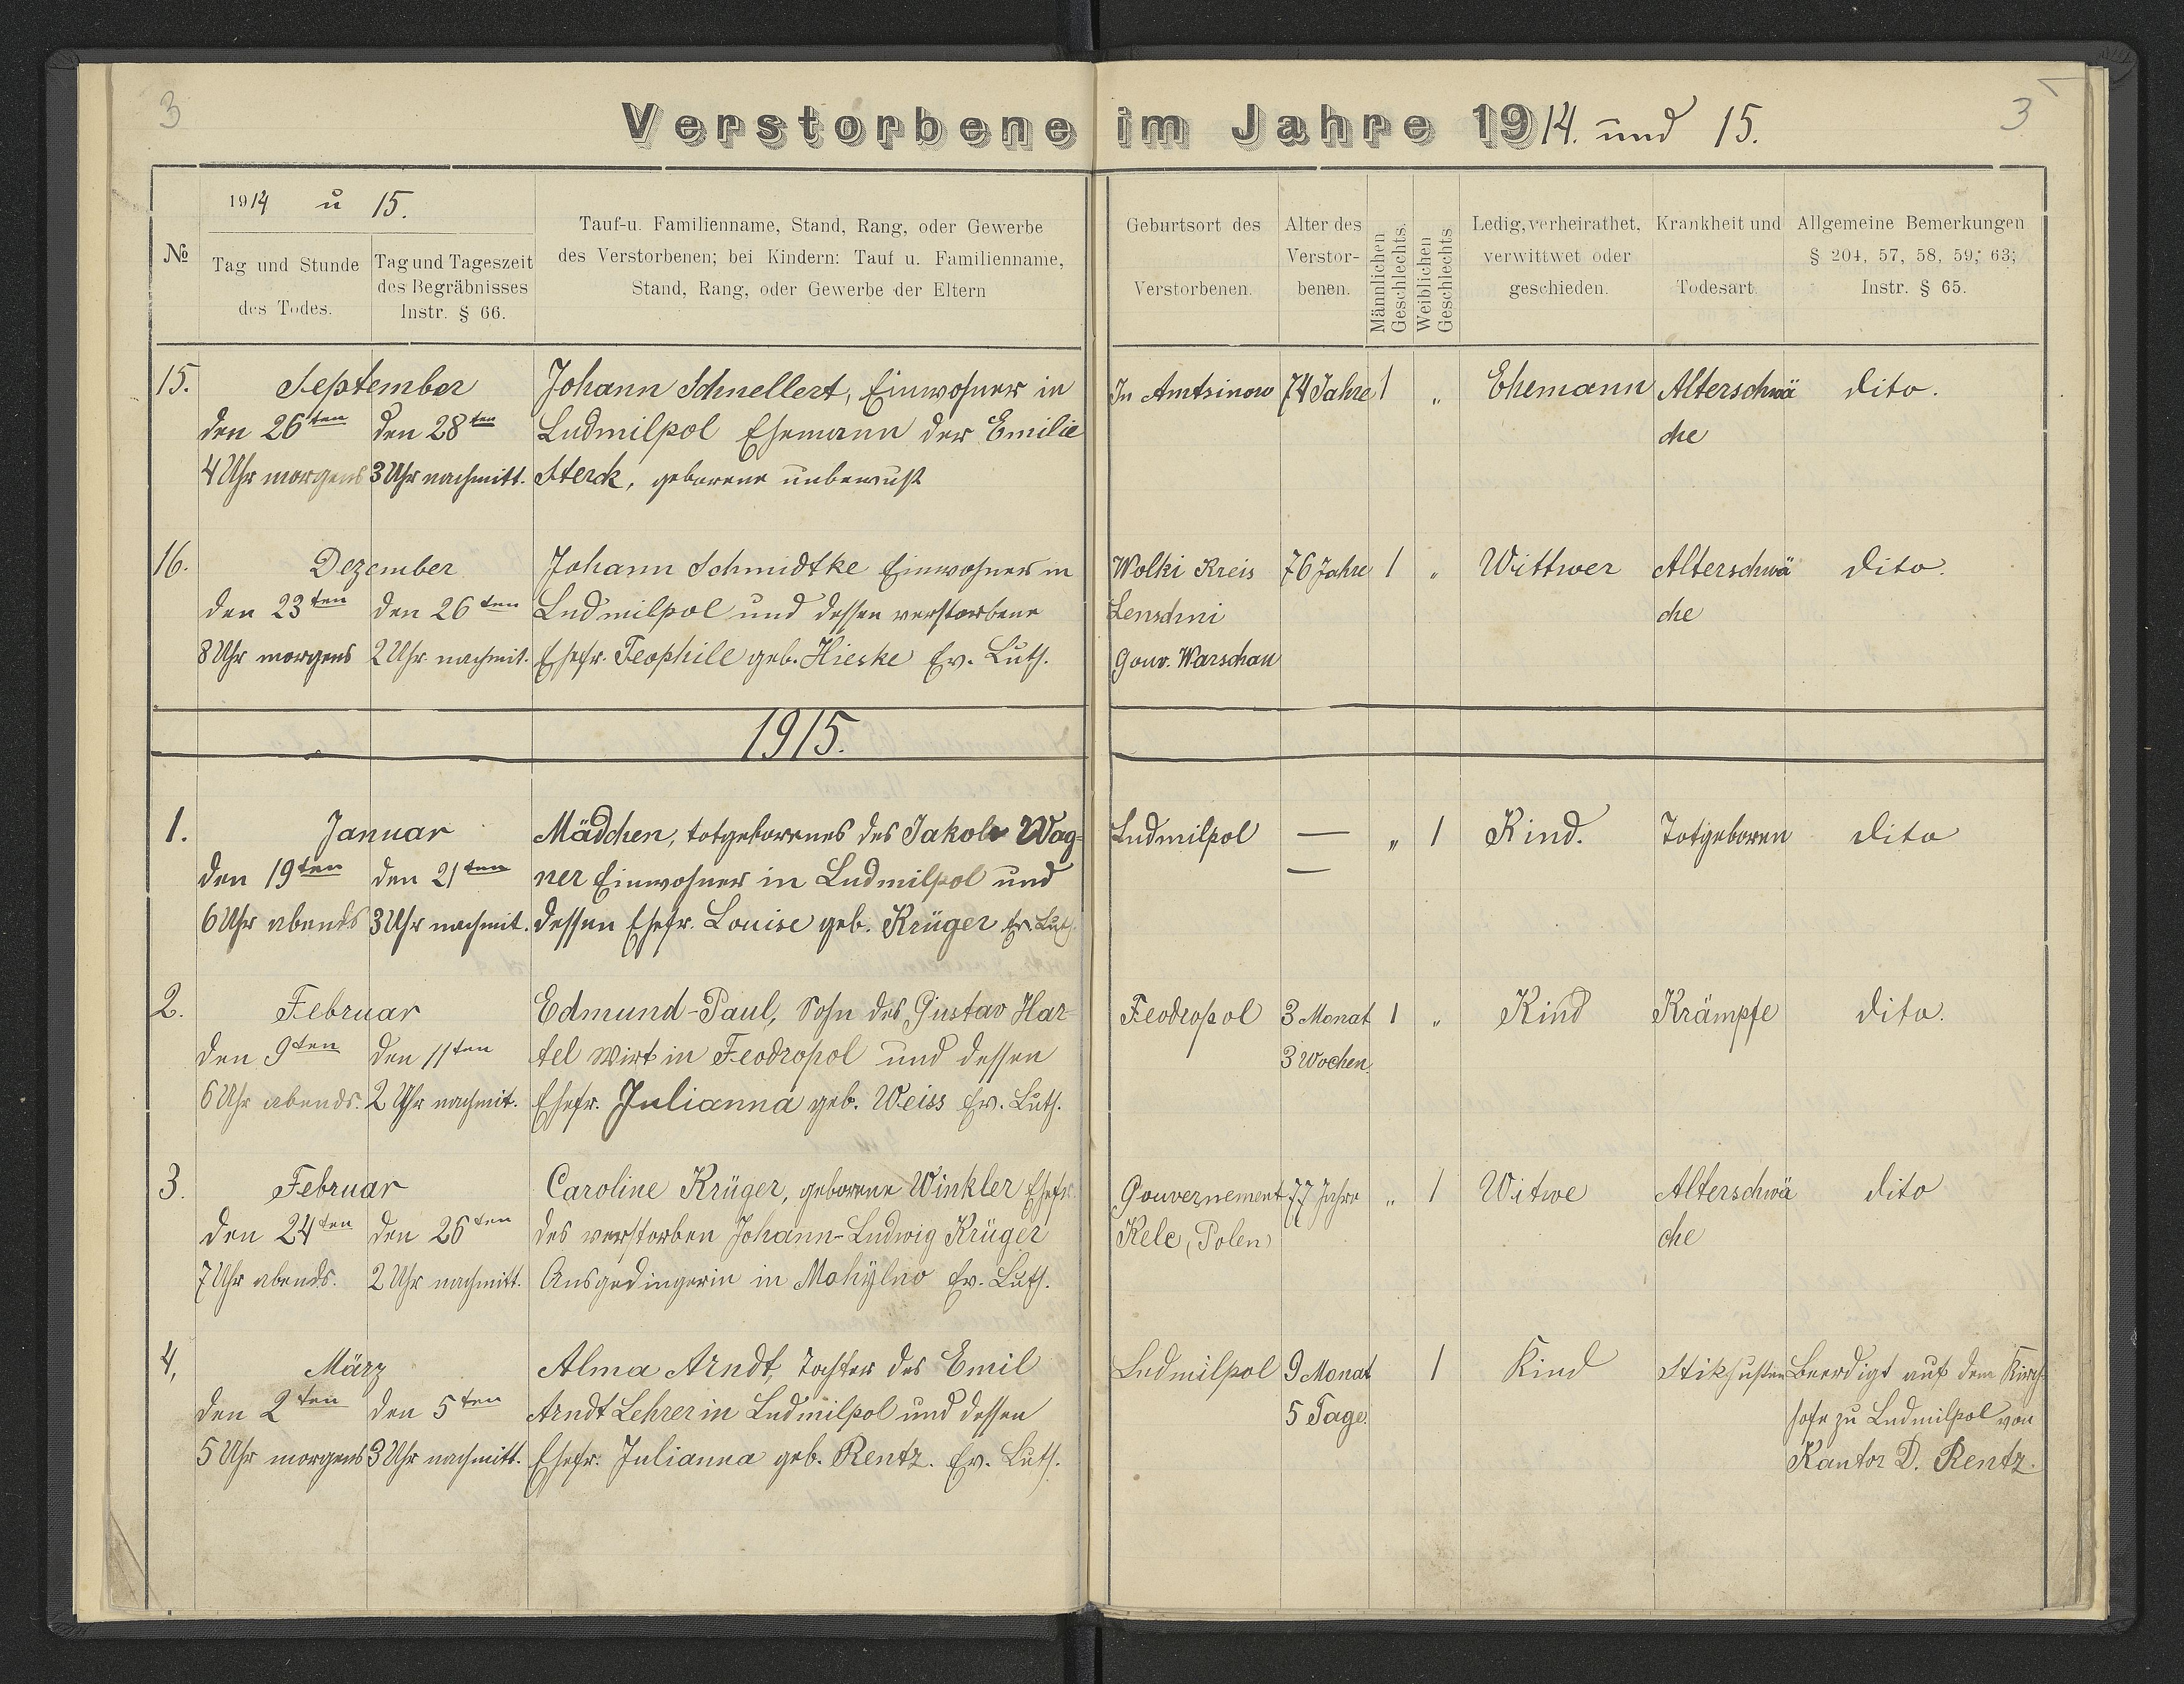 3
Verstorbene im Jahre 1914. und 15.
3
№
1914 u 15.
Tag und Stunde
des Todes.
Tag und Tageszeit
des Begräbnisses
Instr. § 66.
Tauf-u. Familienname, Stand, Rang, oder Gewerbe
des Verstorbenen; bei Kindern: Tauf u. Familienname,
Stand, Rang, oder Gewerbe der Eltern
Geburtsort des
Verstorbenen.
Alter des
Verstor-
benen.
Männlichen
Geschlechts.
Weiblichen
Geschlechts
Ledig, verheirathet,
verwittwet oder
geschieden.
Krankheit und
Todesart.
Allgemeine Bemerkungen
§ 204, 57, 58, 59; 63;
Instr. § 65.
15. September Johann Schnellert, Einwohner in In Amtsinow 74 Jahre 1 „ Ehemann Alterschwä dito.
den 26ten den 28ten Ludmilpol Ehemann der Emilie che
4 Uhr morgens 3 Uhr nachmitt. Sterck, geborene unbewußt
16. Dezember Johann Schmidtke Einwohner in Wolki Kreis 76 Jahre 1 „ Wittwer Alterschwä dito.
den 23ten den 26ten Ludmilpol und dessen verstorbene Lenschni che
8 Uhr morgens 2 Uhr nachmit. Ehefr. Teophile geb. Hieske Ev. Luth. Gouv. Warschau
1915.
1. Januar Mädchen, totgeborenes des Jakob Wag- Ludmilpol — „ 1 Kind. Totgeboren dito
den 19ten den 21ten ner Einwohner in Ludmilpol und —
6 Uhr abends 3 Uhr nachmit. dessen Ehefr. Louise geb. Krüger Ev. Luth.
2. Februar Edmund-Paul, Sohn des Gustav Har- Feodropol 3 Monat 1 „ Kind Krämpfe dito.
den 9ten den 11ten tel Wirt in Feodropol und dessen 3 Wochen.
6 Uhr abends. 2 Uhr nachmit. Ehefr. Julianna geb. Weiss Ev. Luth.
3. Februar Caroline Krüger, geborene Winkler Ehefr. Gouvernement 77 Jahre „ 1 Witwe Alterschwä dito
den 24ten den 26ten des verstorben Johann-Ludwig Krüger Kele (Polen) che
7 Uhr abends. 2 Uhr nachmitt. Ausgedingerin in Mohÿlno Ev. Luth.
4, März Alma Arndt, Tochter des Emil Ludmilpol 9 Monat 1 Kind Stikhusten Beerdigt auf dem Kirch-
den 2ten den 5ten Arndt Lehrer in Ludmilpol und dessen 5 Tage. hofe zu Ludmilpol von
5 Uhr morgens 3 Uhr nachmitt. Ehefr. Julianna geb. Rentz. Ev. Luth. Kantor D. Rentz.